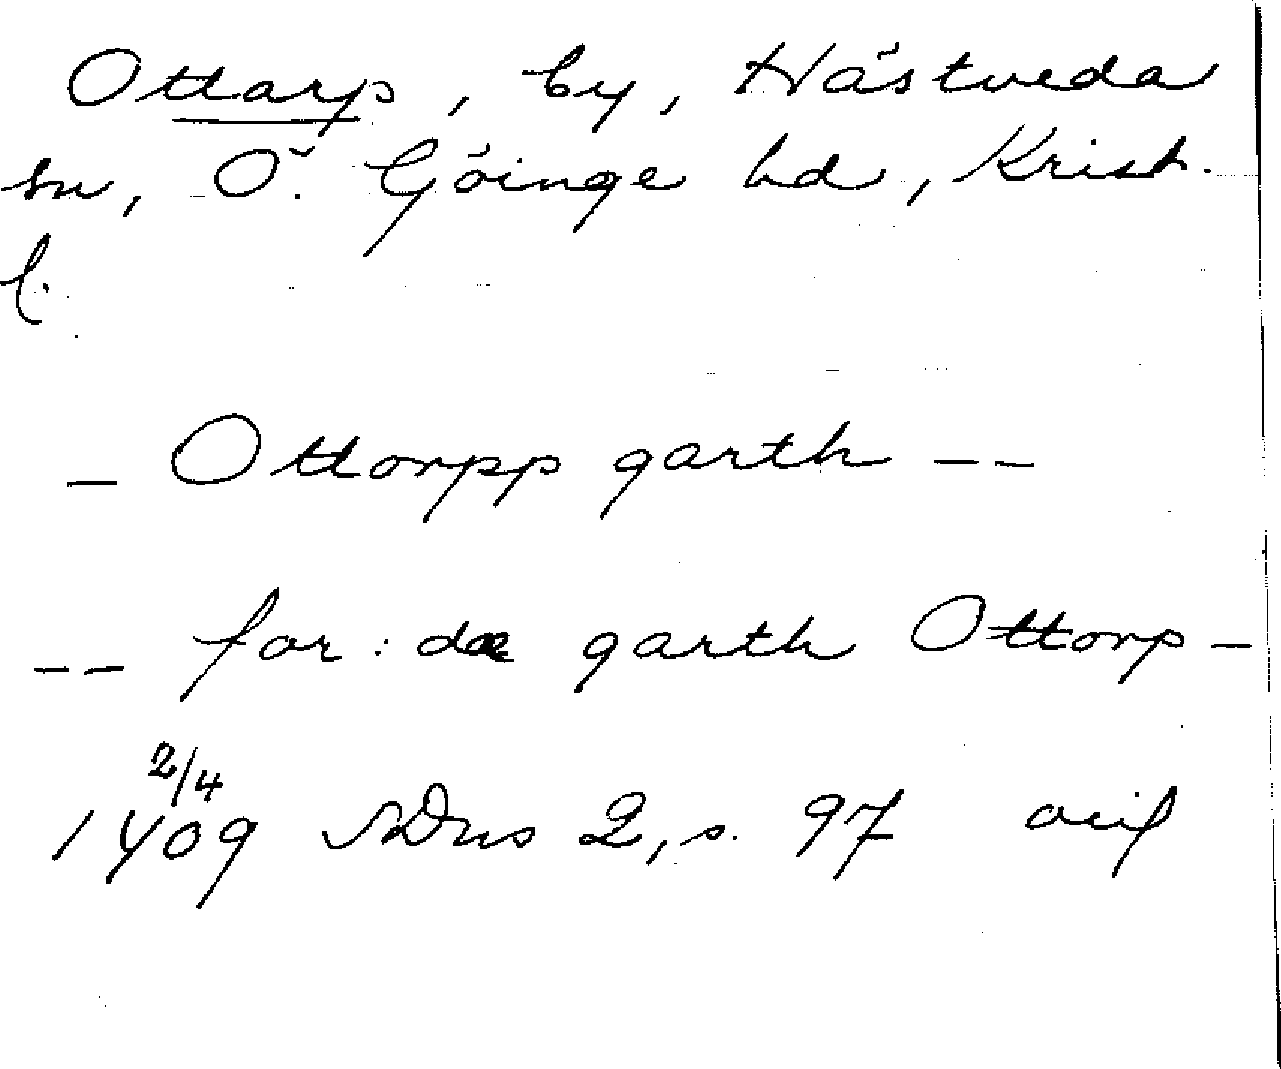 Ottarp, by, Hästveda
sn, Ö. Göinge hd, Krist.
l.
- Ottorpp garth --
-- for: dæ garth Ottorp -
2/4
1409 SDns 2, s. 97